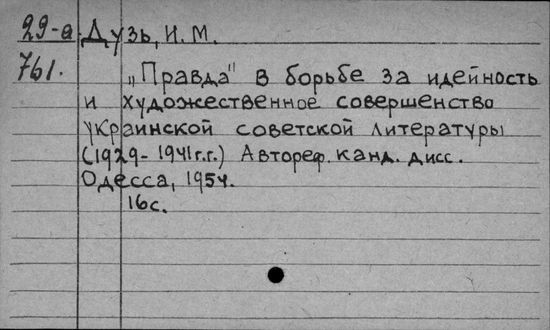 29-а Дузь, И. М.
761.
„Правда" в борьбе за идейность
и художественное совершенство
украинской советской литературы
(1929-1941г.г.) Автореф. канд. дисс.
Одесса, 1954.
16с.